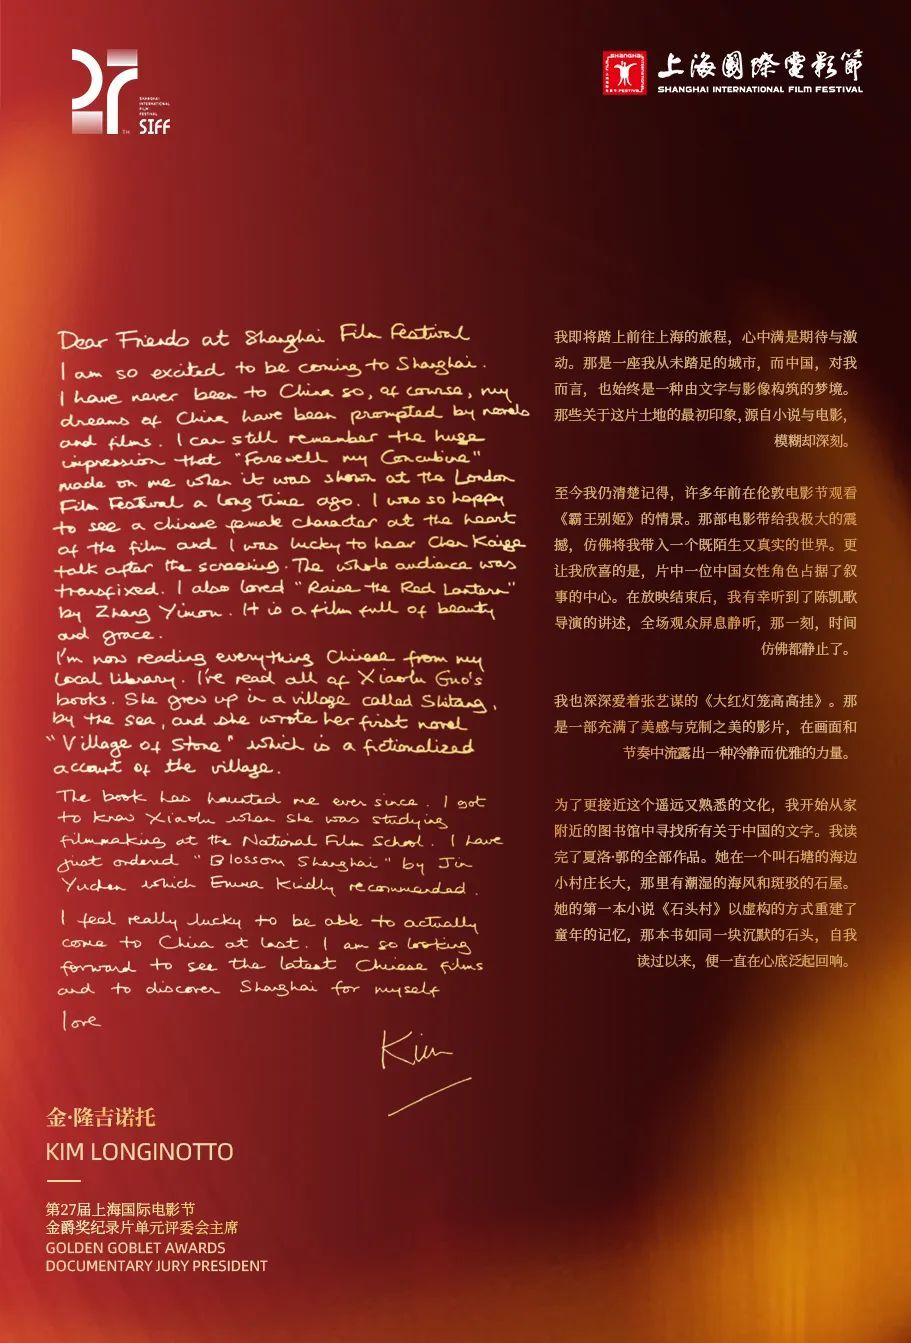 SHANGHAI
INTERNATIONAL
FILM
FESTIVAL
SIFF
TM
上海國際電影節
SHANGHAI INTERNATIONAL FILM FESTIVAL
Dear Friends at Shanghai Film Festival
I am so excited to be coming to Shanghai.
I have never been to China so, of course, my
dreams of China have been prompted by novels
and films. I can still remember the huge
impression that "Farewell my Concubine"
made on me when it was shown at the London
Film Festival a long time ago. I was so happy
to see a chinese female character at the heart
of the film and I was lucky to hear Chen Kaige
talk after the screening. The whole audience was
transfixed. I also loved "Raise the Red Lantern"
by Zhang Yimou. It is a film full of beauty
and grace.
I'm now reading everything Chinese from my
local library. I've read all of Xiaolu Guo's
books. She grew up in a village called Shitang,
by the sea, and she wrote her first novel
"Village of Stone" which is a fictionalized
account of the village.
The book has haunted me ever since. I got
to know Xiaolu when she was studying
filmmaking at the National Film School. I have
just ordered "Blossom Shanghai" by Jin
Yuchen which Emma kindly recommended.
I feel really lucky to be able to actually
come to China at last. I am so looking
forward to see the latest Chinese films
and to discover Shanghai for myself
love
Kim
我即将踏上前往上海的旅程，心中满是期待与激
动。那是一座我从未踏足的城市，而中国，对我
而言，也始终是一种由文字与影像构筑的梦境。
那些关于这片土地的最初印象，源自小说与电影，
模糊却深刻。
至今我仍清楚记得，许多年前在伦敦电影节观看
《霸王别姬》的情景。那部电影带给我极大的震
撼，仿佛将我带入一个既陌生又真实的世界。更
让我欣喜的是，片中一位中国女性角色占据了叙
事的中心。在放映结束后，我有幸听到了陈凯歌
导演的讲述，全场观众屏息静听，那一刻，时间
仿佛都静止了。
我也深深爱着张艺谋的《大红灯笼高高挂》。那
是一部充满了美感与克制之美的影片，在画面和
节奏中流露出一种冷静而优雅的力量。
为了更接近这个遥远又熟悉的文化，我开始从家
附近的图书馆中寻找所有关于中国的文字。我读
完了夏洛·郭的全部作品。她在一个叫石塘的海边
小村庄长大，那里有潮湿的海风和斑驳的石屋。
她的第一本小说《石头村》以虚构的方式重建了
童年的记忆，那本书如同一块沉默的石头，自我
读过以来，便一直在心底泛起回响。
金·隆吉诺托
KIM LONGINOTTO
第27届上海国际电影节
金爵奖纪录片单元评委会主席
GOLDEN GOBLET AWARDS
DOCUMENTARY JURY PRESIDENT